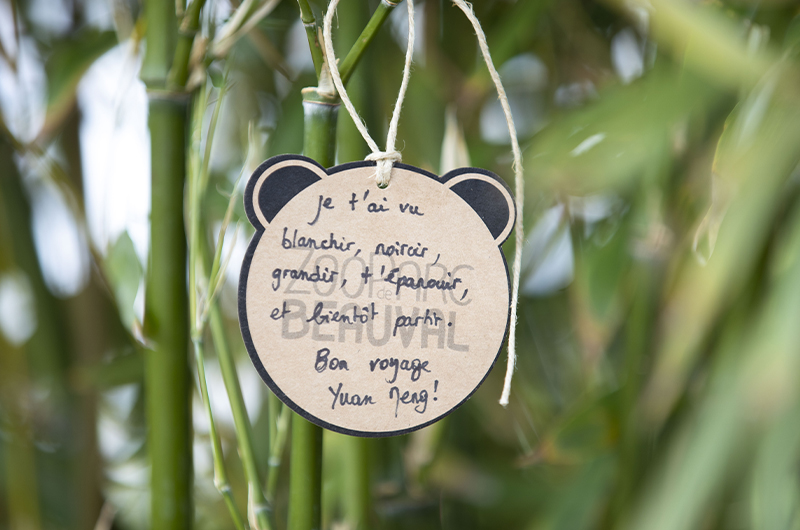 Je t'ai vu
blanchir, noircir,
grandir, t'épanouir,
et bientôt partir.
Bon voyage
Yuan Meng!
ZOOPARC
de
BEAUVAL